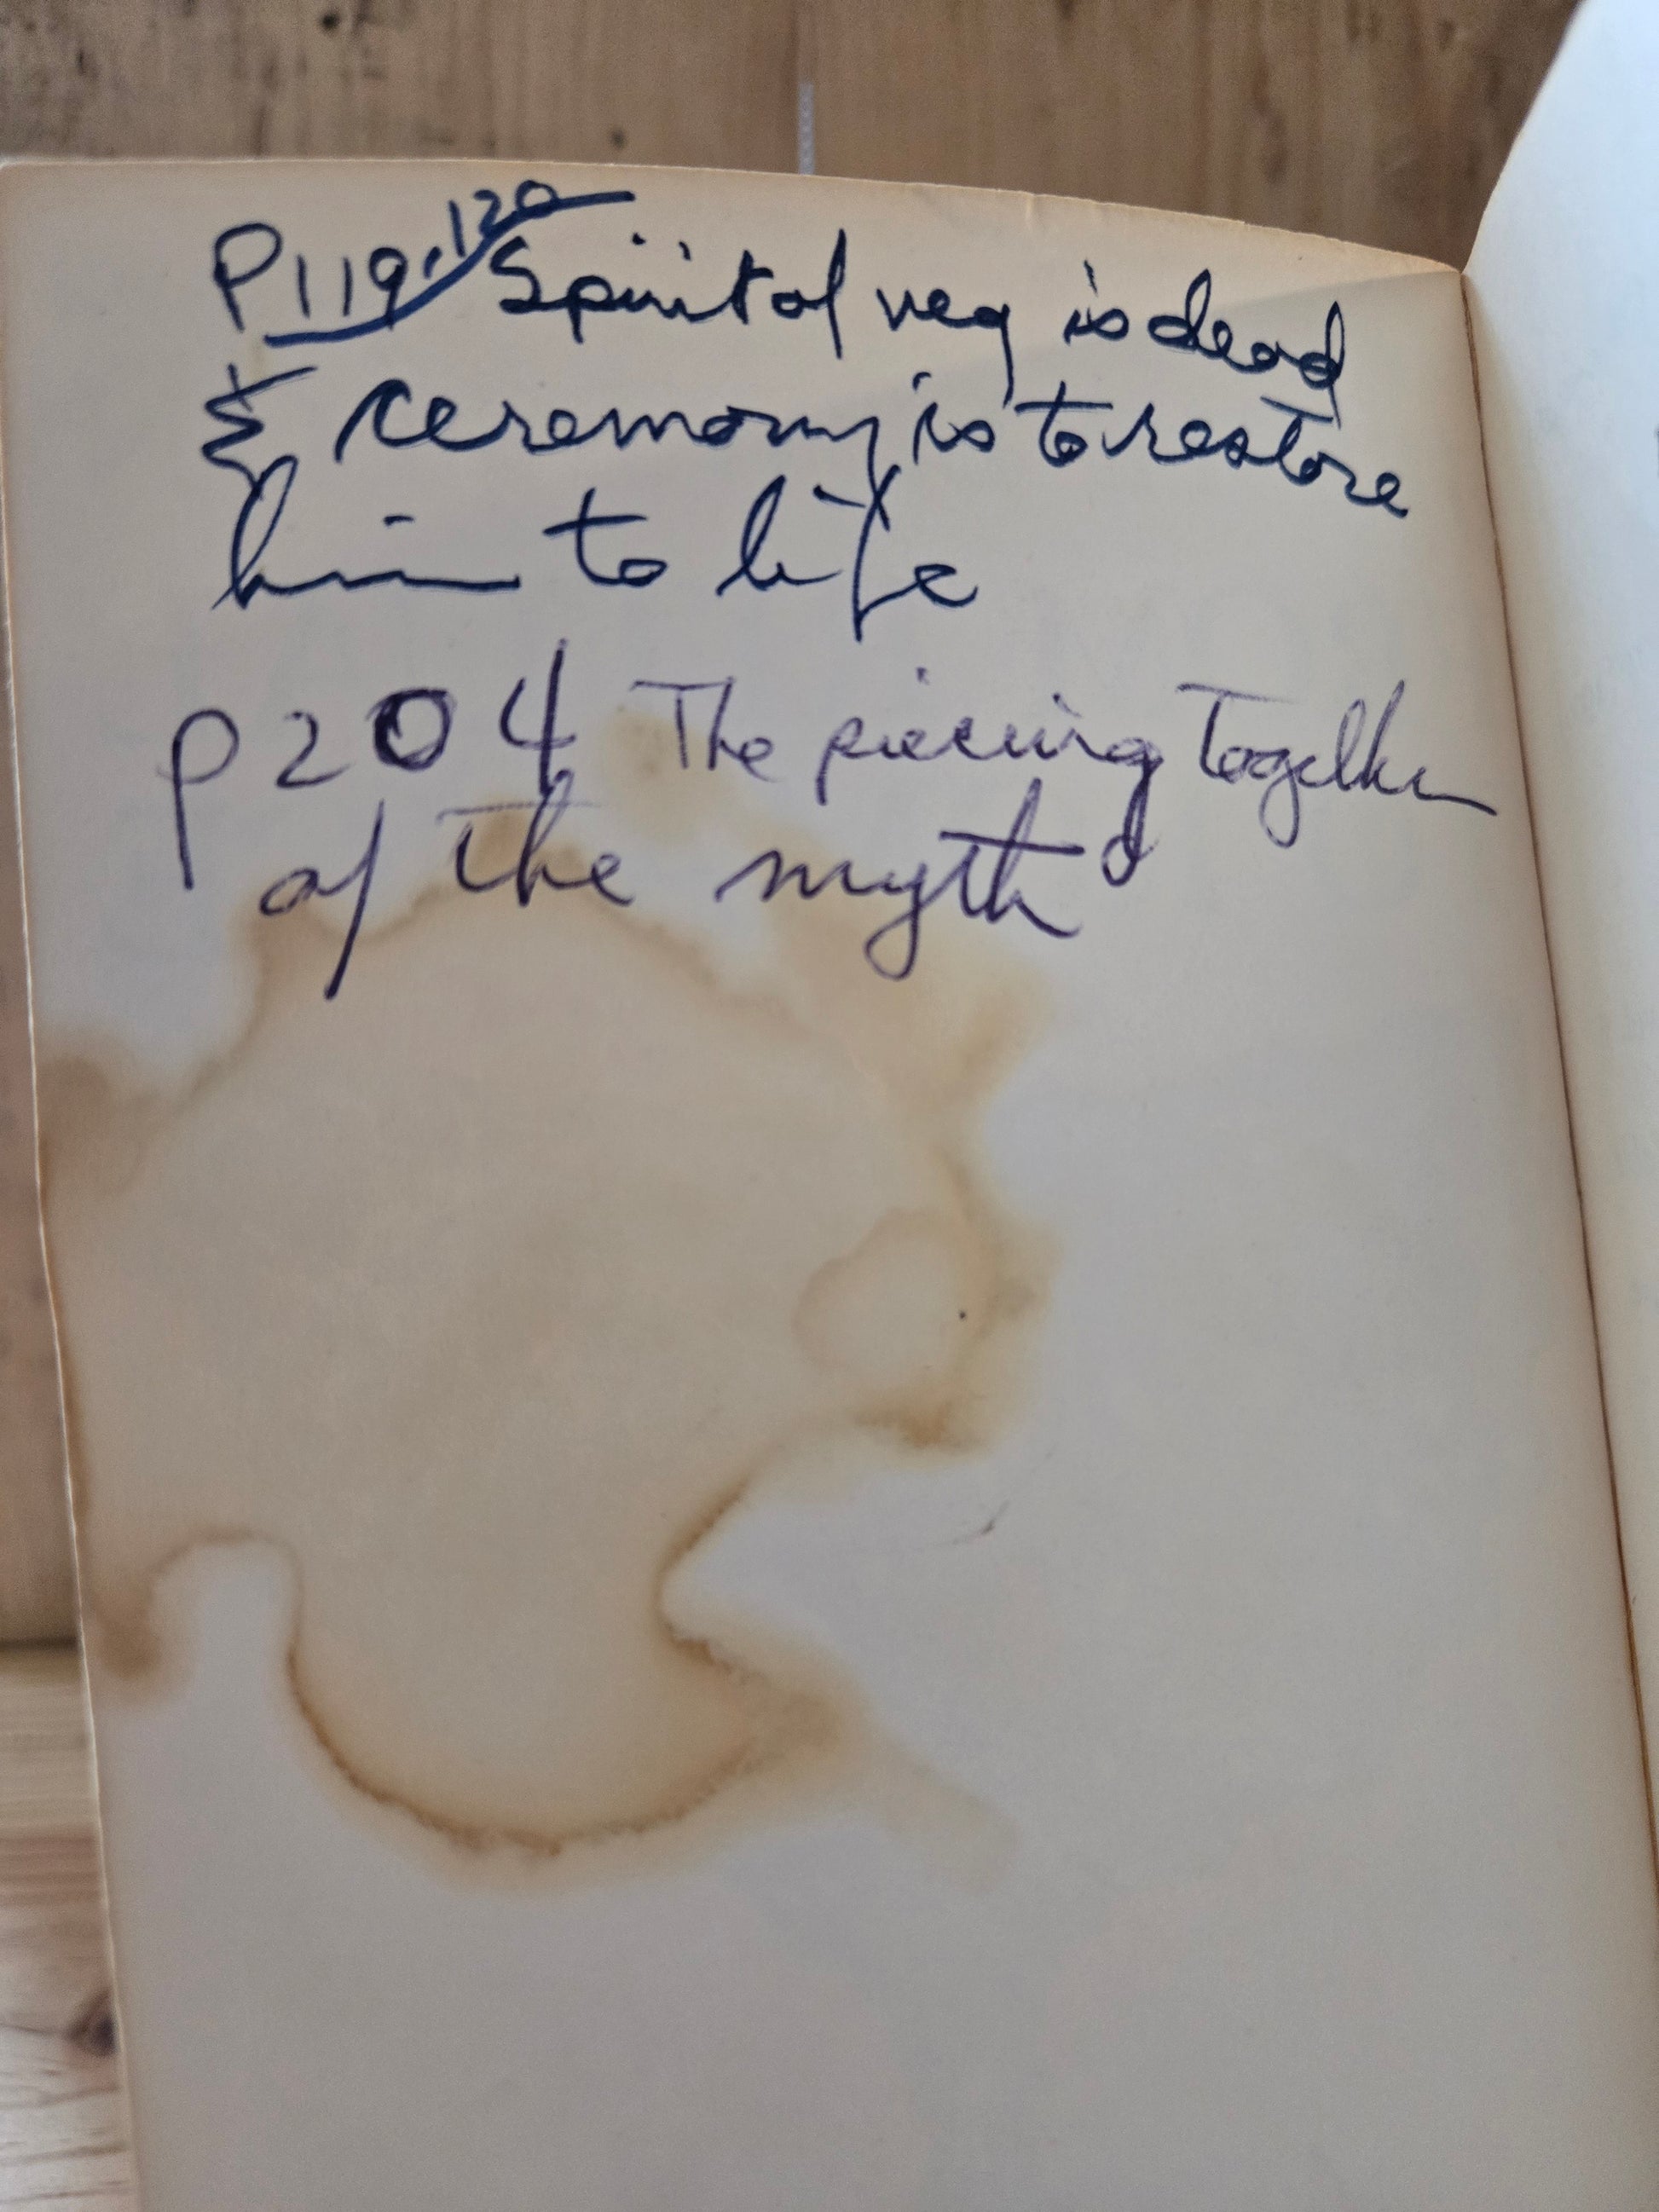 P119-120 Spirit of veg is dead
& ceremony is to restore
him to life
p204 The piecing together
of the myth